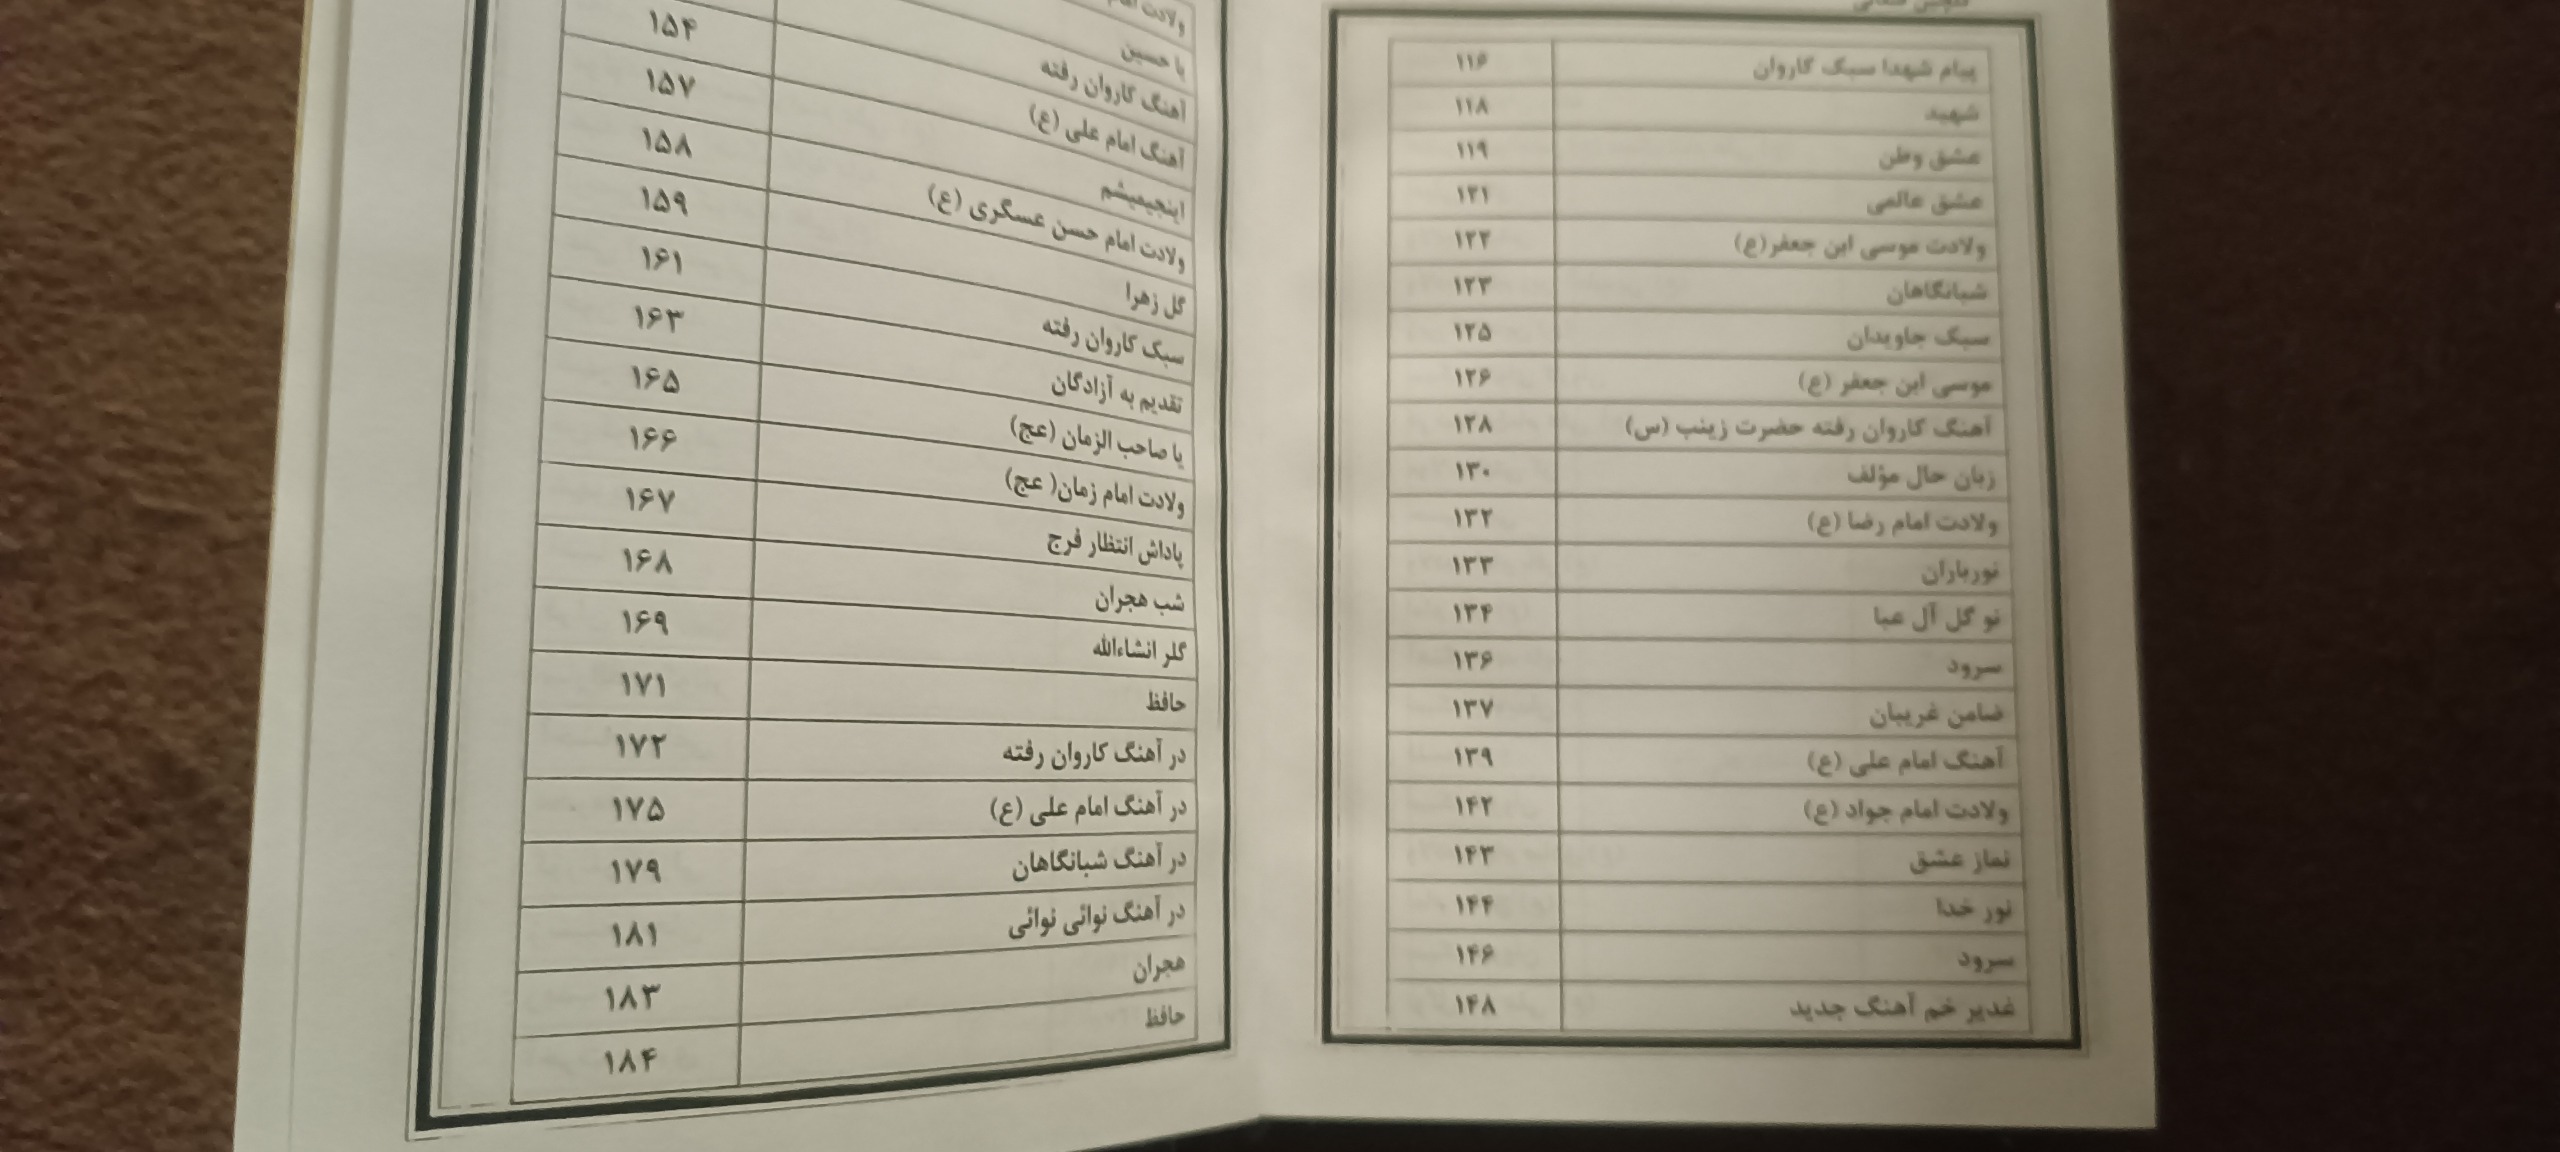 پیام شهدا سبک کاروان ۱۱۶
شهید ۱۱۸
عشق وطن ۱۱۹
عشق عالمی ۱۲۱
ولادت موسی ابن جعفر(ع) ۱۲۲
شبانگاهان ۱۲۳
سبک جاویدان ۱۲۵
موسی ابن جعفر (ع) ۱۲۶
آهنگ کاروان رفته حضرت زینب (س) ۱۲۸
زبان حال مؤلف ۱۳۰
ولادت امام رضا (ع) ۱۳۲
نورباران ۱۳۳
نو گل آل عبا ۱۳۴
سرود ۱۳۶
ضامن غریبان ۱۳۷
آهنگ امام علی (ع) ۱۳۹
ولادت امام جواد (ع) ۱۴۲
نماز عشق ۱۴۳
نور خدا ۱۴۴
سرود ۱۴۶
غدیر خم آهنگ جدید ۱۴۸
ولادت امام
یا حسین
آهنگ کاروان رفته
آهنگ امام علی (ع) ۱۵۴
اینجیمیشم ۱۵۷
ولادت امام حسن عسگری (ع) ۱۵۸
گل زهرا ۱۵۹
سبک کاروان رفته ۱۶۱
تقدیم به آزادگان ۱۶۳
یا صاحب الزمان (عج) ۱۶۵
ولادت امام زمان( عج) ۱۶۶
پاداش انتظار فرج ۱۶۷
شب هجران ۱۶۸
گلر انشاءالله ۱۶۹
حافظ ۱۷۱
در آهنگ کاروان رفته ۱۷۲
در آهنگ امام علی (ع) ۱۷۵
در آهنگ شبانگاهان ۱۷۹
در آهنگ نوائی نوائی ۱۸۱
هجران ۱۸۳
حافظ ۱۸۴